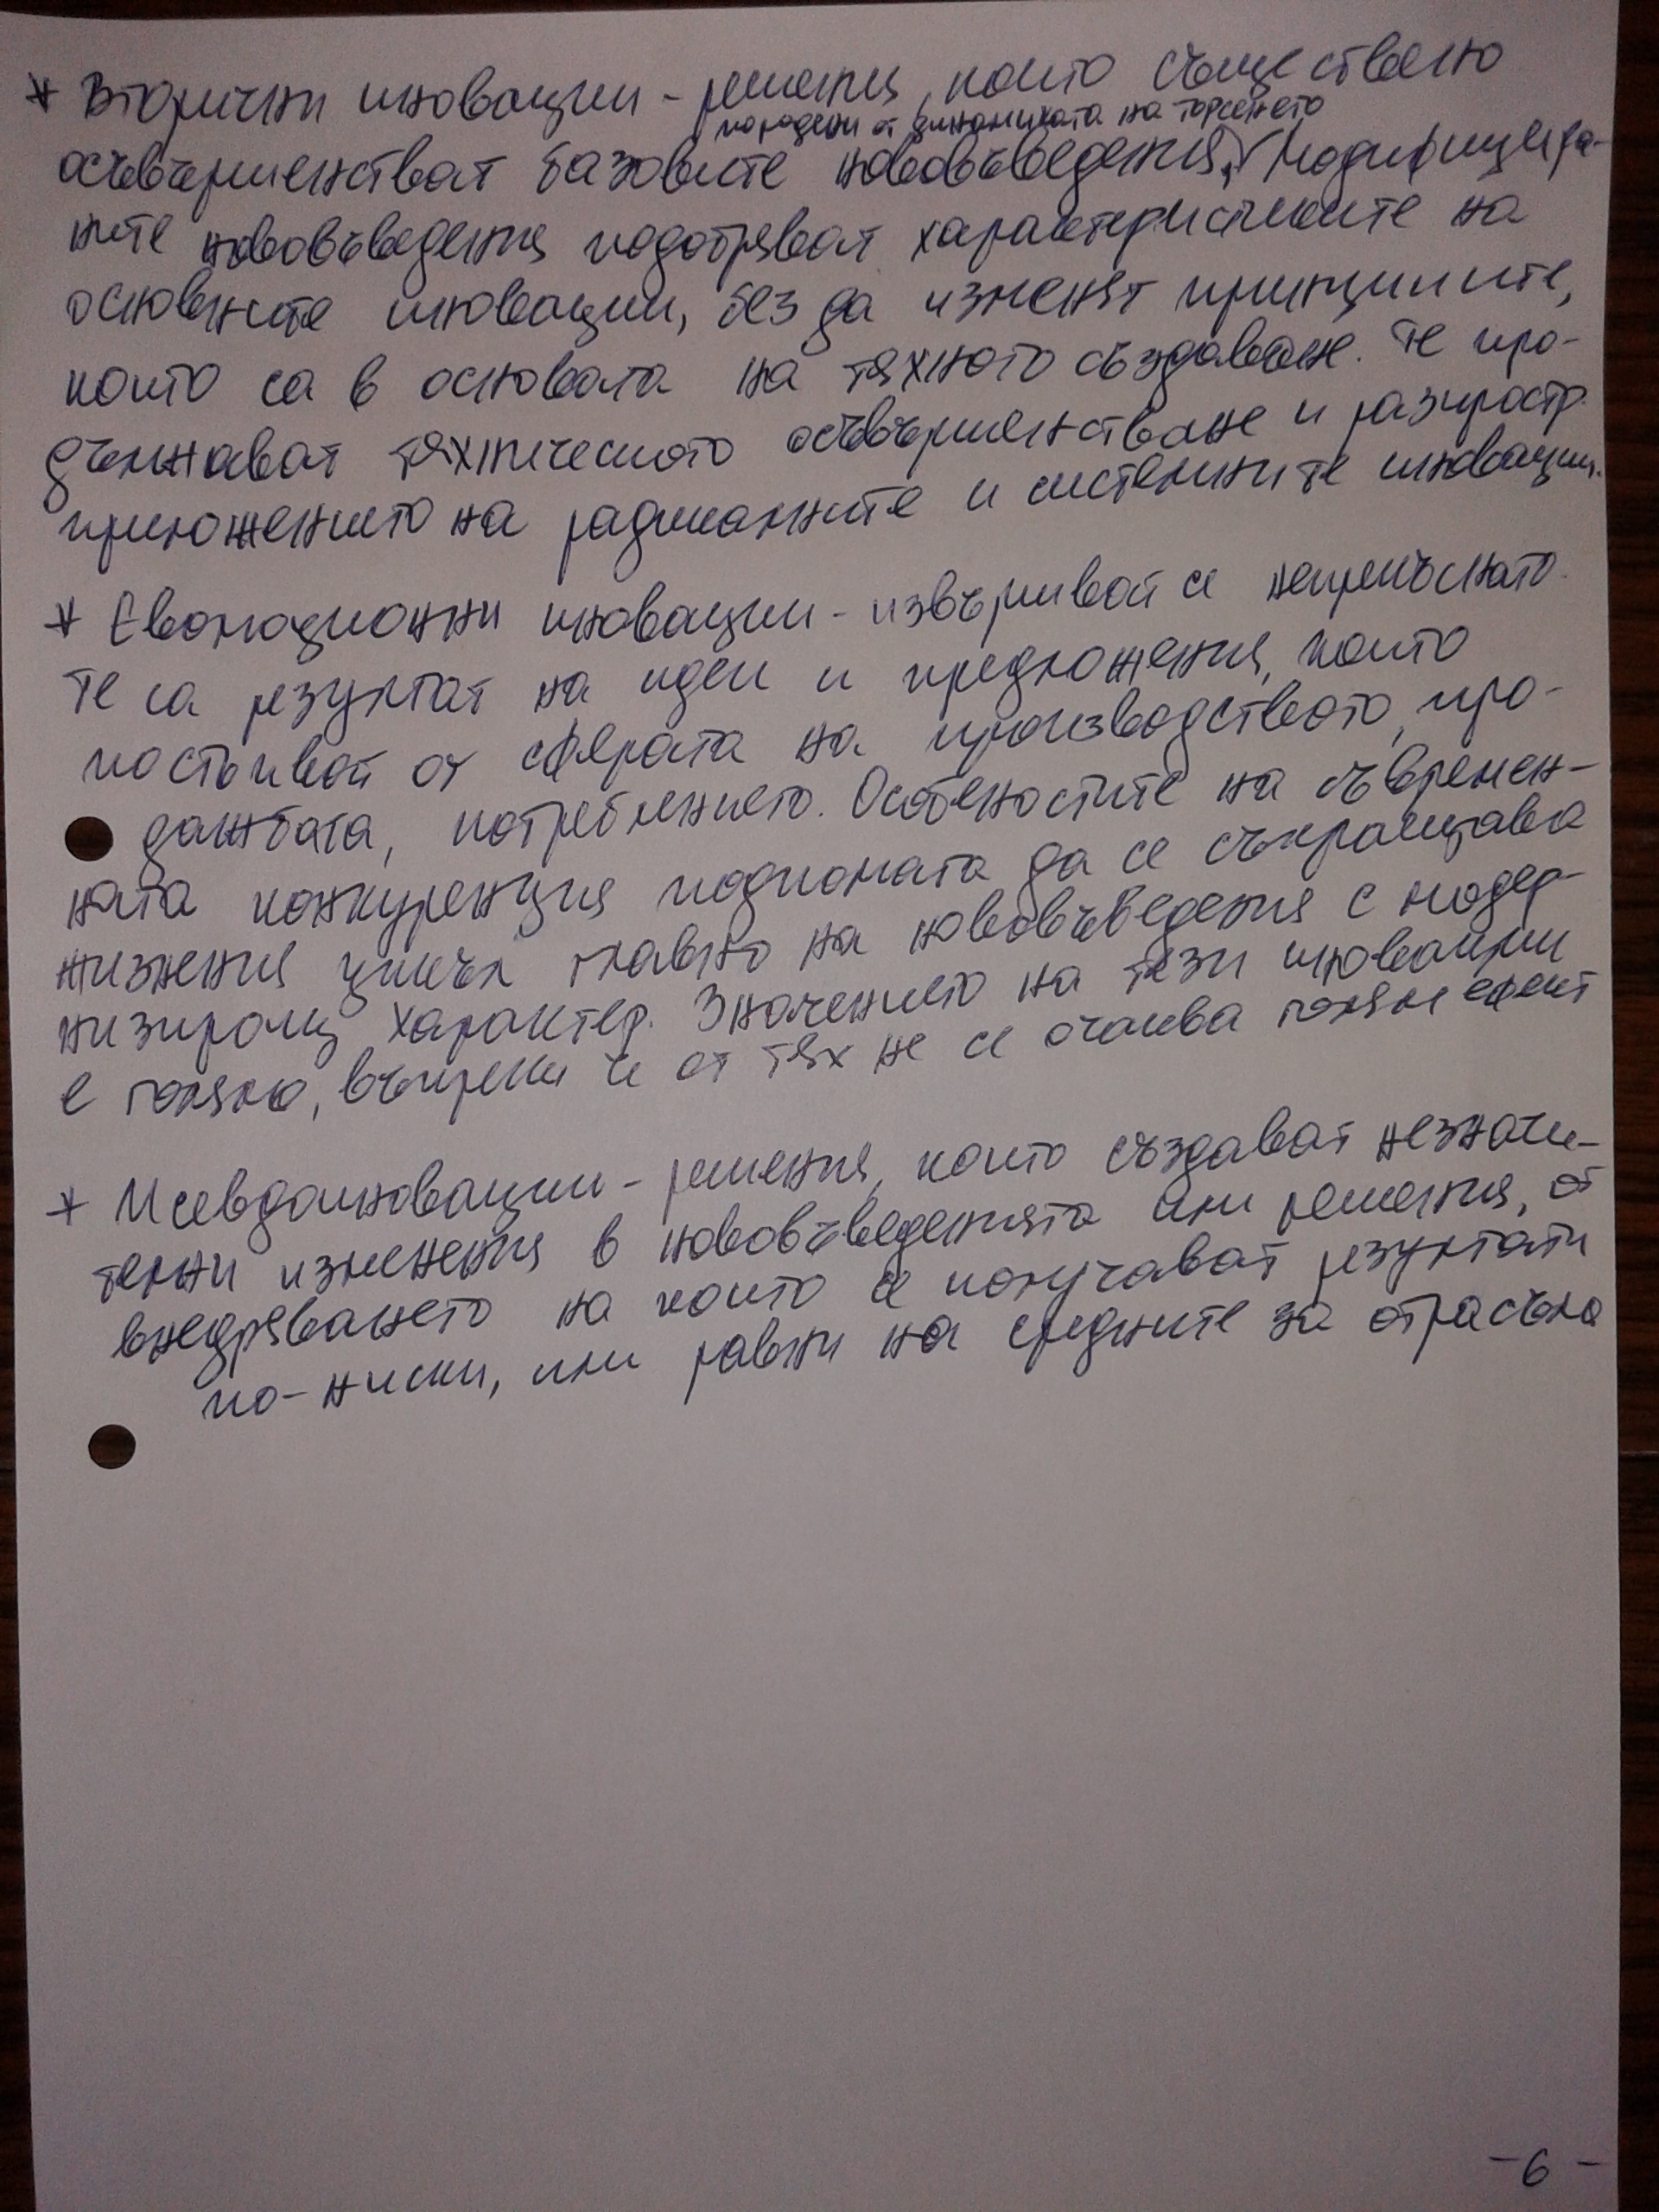 * Вторични иновации - решения, които съществено
породени от динамиката на търсенето
осъвършенстват базовите нововъведения, Модифицира-
ните нововъведения подобряват характеристиките на
основните иновации, без да изменят принципите,
които са в основата на тяхното създаване. Те про-
дължават техническото осъвършенстване и разпростр.
приложението на радикалните и системните иновации.
* Еволюционни иновации - извършват се непрекъснато.
Те са резултат на идеи и предложения, които
постъпват от сферата на производството, про-
дажбата, потреблението. Особеностите на съвремен-
ната конкуренция подпомага да се съкращава
жизнения цикъл главно на нововъведения с модер-
низиращ характер. Значението на тези иновации
е голямо, въпреки че от тях не се очаква голям ефект
* Псевдоиновации - решения, които създават незначи-
телни изменения в нововъведенията или решения, от
внедряването на които се получават резултати
по-ниски, или равни на средните за отрасъла
-6-